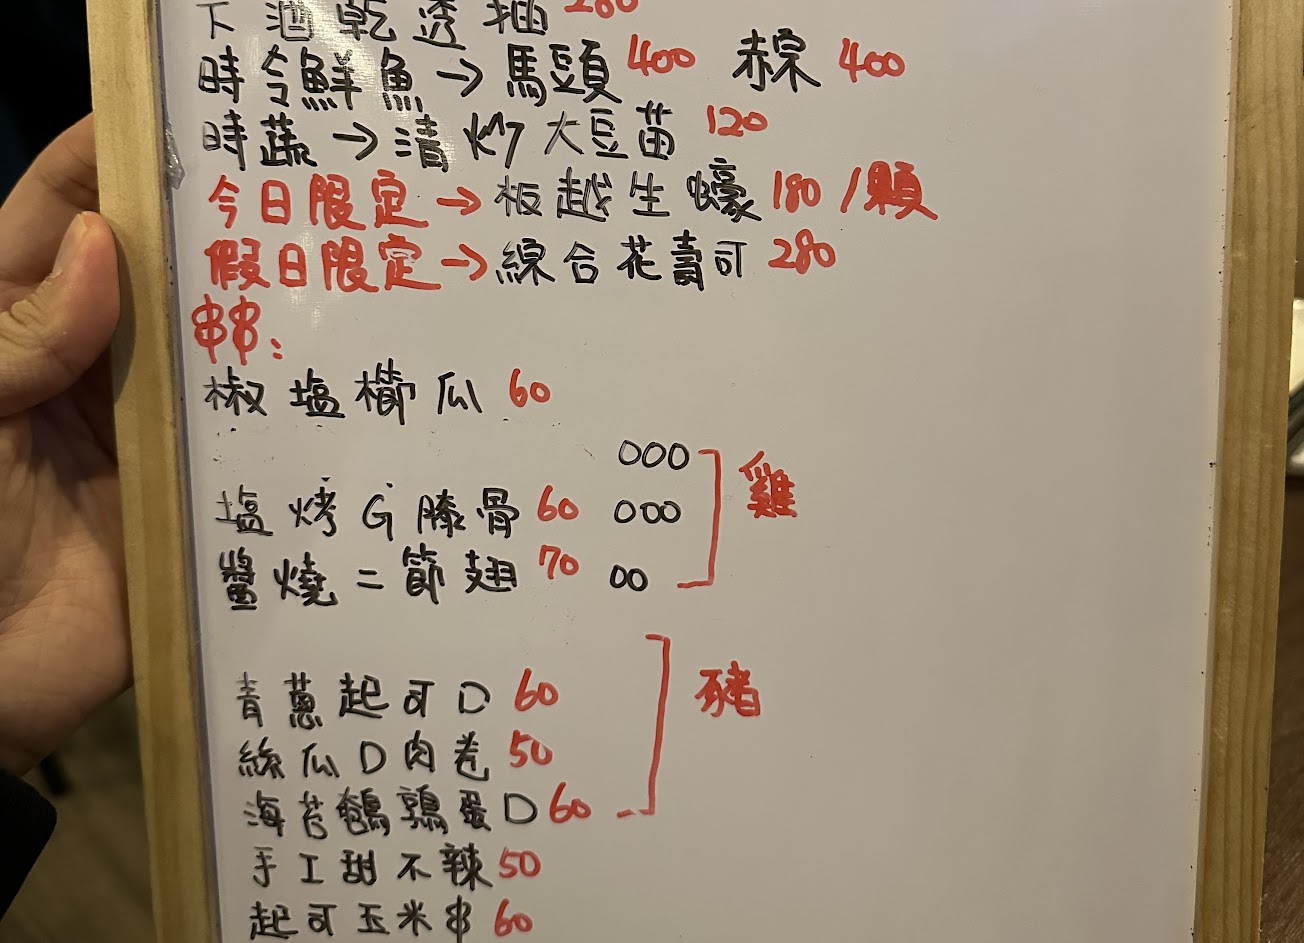 下酒乾透抽 280
時令鮮魚→馬頭 400 赤鯮 400
時蔬→清炒大豆苗 120
今日限定→板越生蠔 180 /顆
假日限定→綜合花壽司 280
串串:
椒塩櫛瓜 60
塩烤G膝骨 60
醬燒二節翅 70
ooo
ooo
oo
雞
青蔥起司D 60
絲瓜D肉卷 50
海苔鵪鶉蛋D 60
豬
手工甜不辣 50
起司玉米串 60